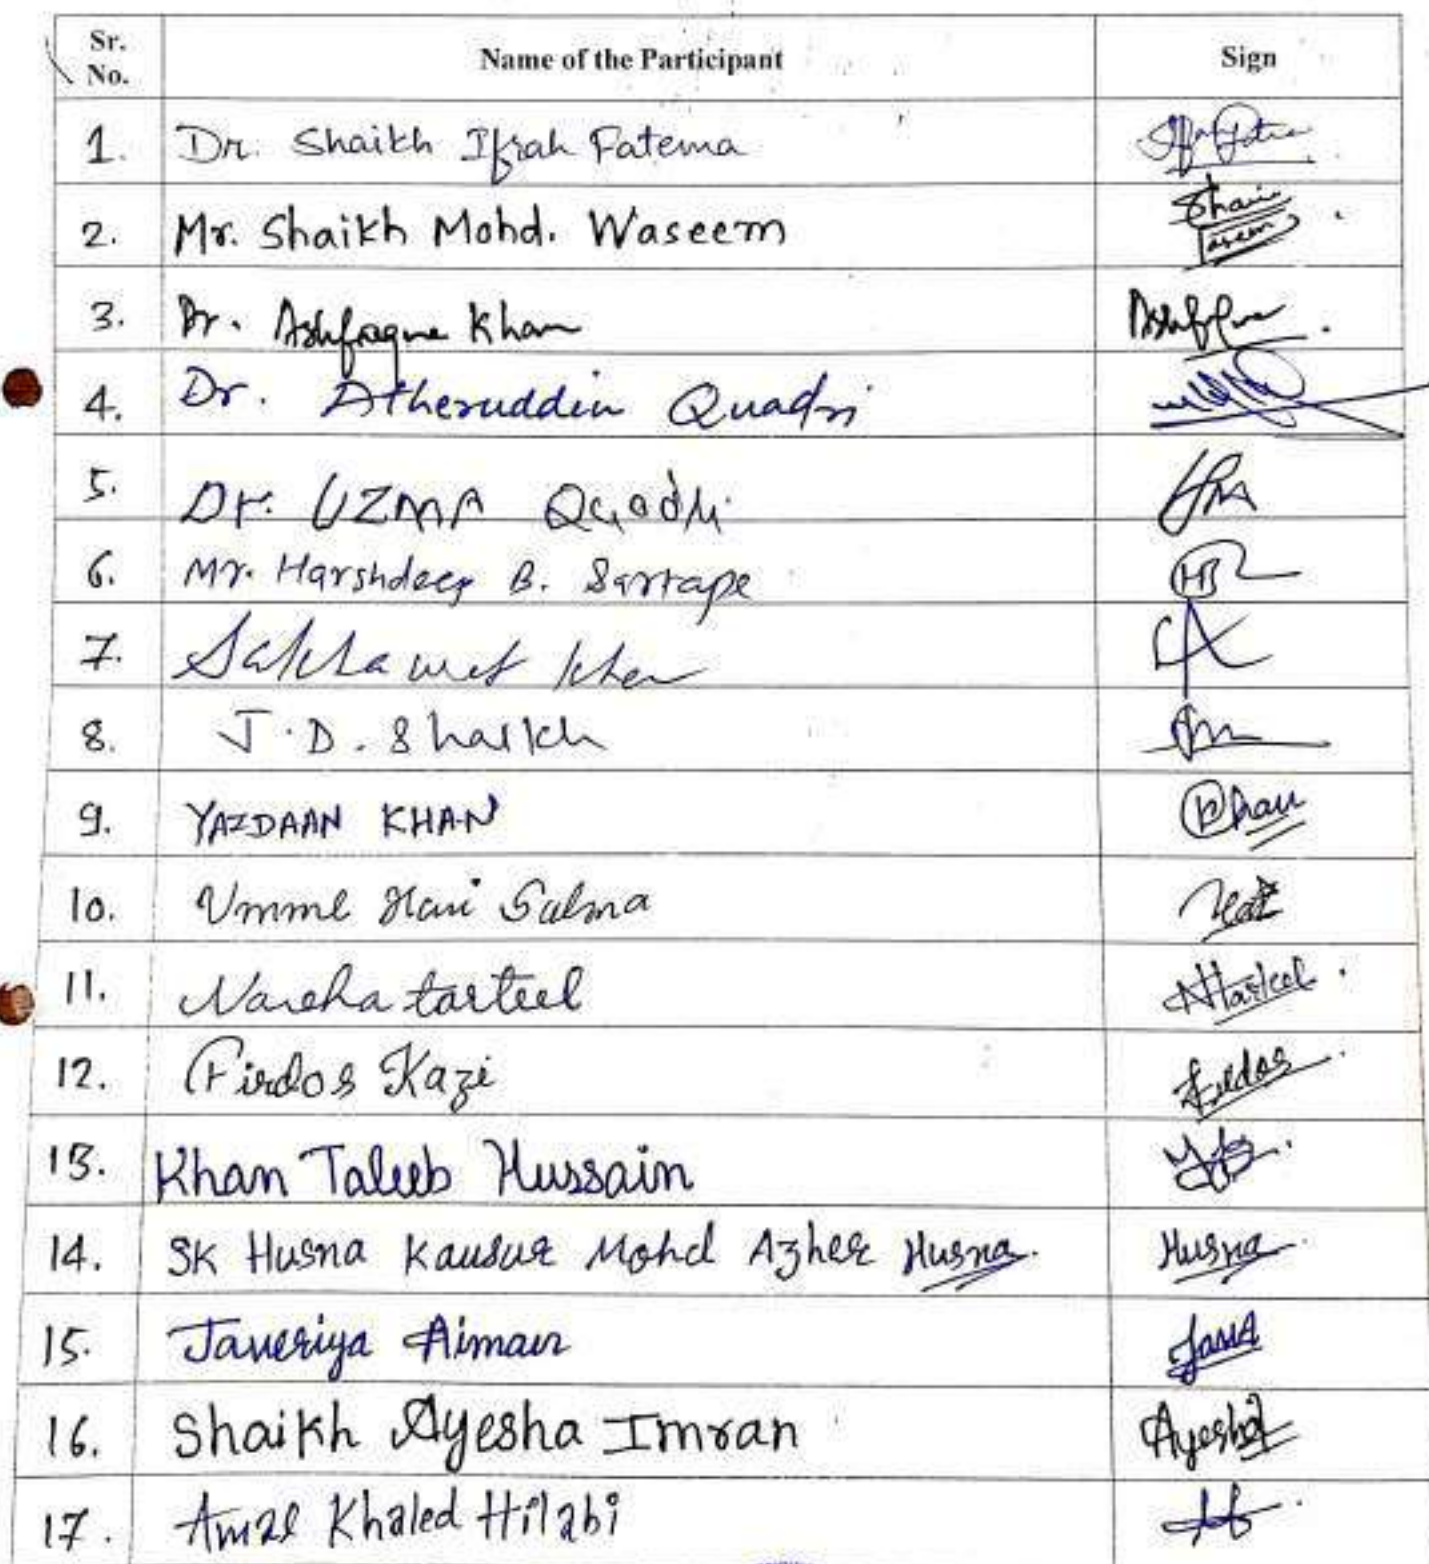 Sr. No. Name of the Participant Sign
1. Dr. Shaikh Ifrah Fatema
2. Mr. Shaikh Mohd. Waseem
3. Dr. Ashfaque Khan
4. Dr. Atheruddin Quadri
5. Dr. UZMA Quadri
6. Mr. Harshdeep B. Sartape
7. Sakhawat Khan
8. J.D. Shaikh
9. YAZDAAN KHAN Khan
10. Umme Hani Salma
11. Nareha tarteel
12. Firdos Kazi Firdos
13. Khan Taleeb Hussain
14. SK Husna Kausar Mohd Azher Husna. Husna
15. Javeriya Aiman
16. Shaikh Ayesha Imran Ayesha
17. Amal Khaled Hilabi